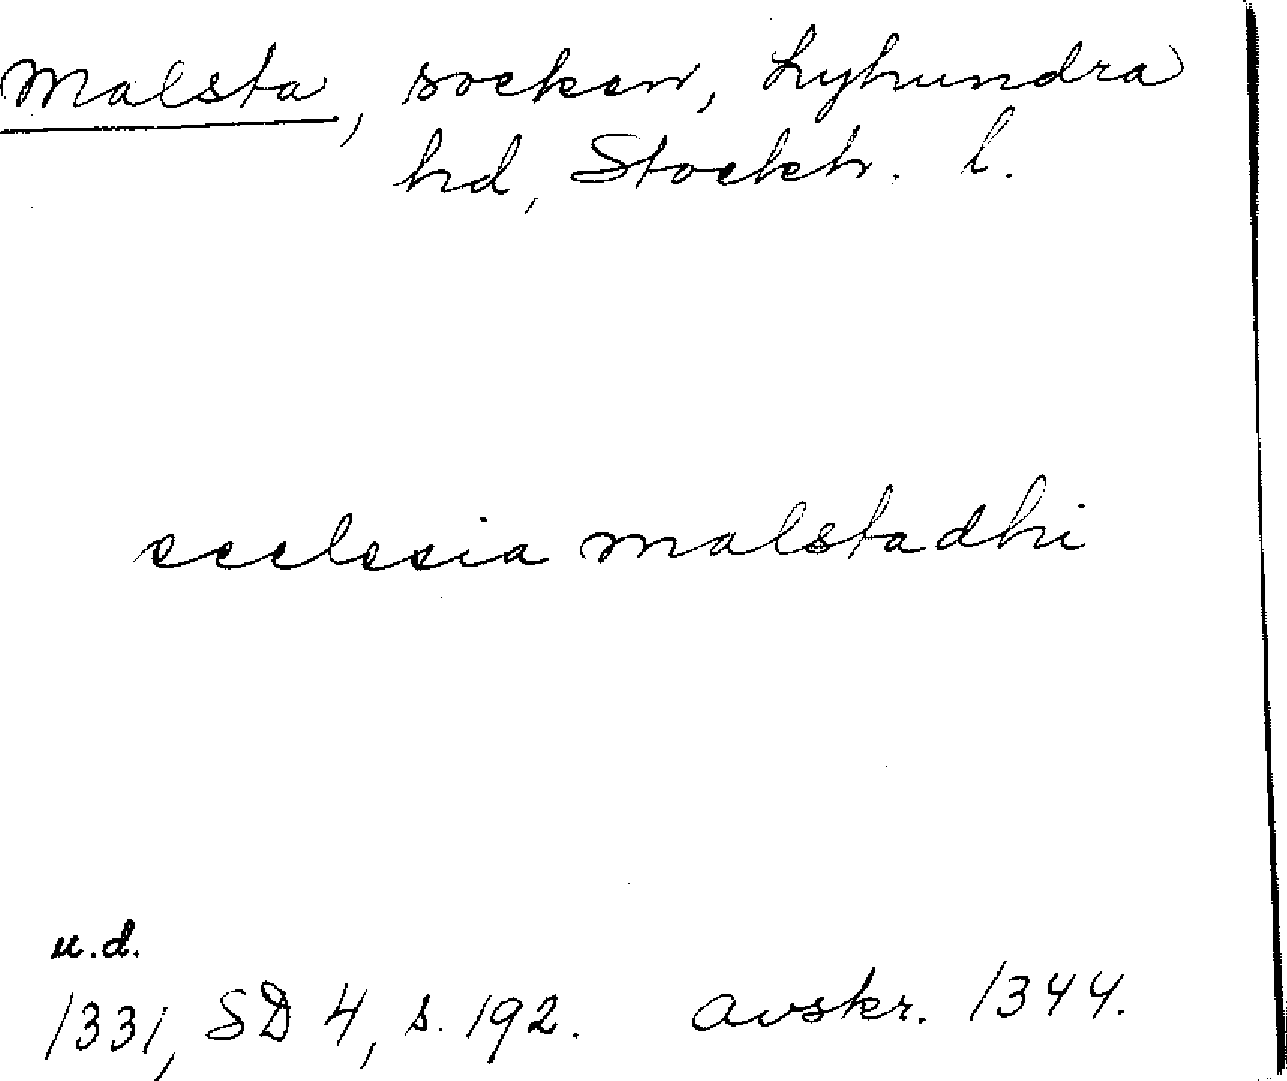 Malsta, socken, Lyhundra
hd, Stockh. l.
ecclesia malstadhi
u.d.
1331, SD 4, s. 192. avskr. 1344.